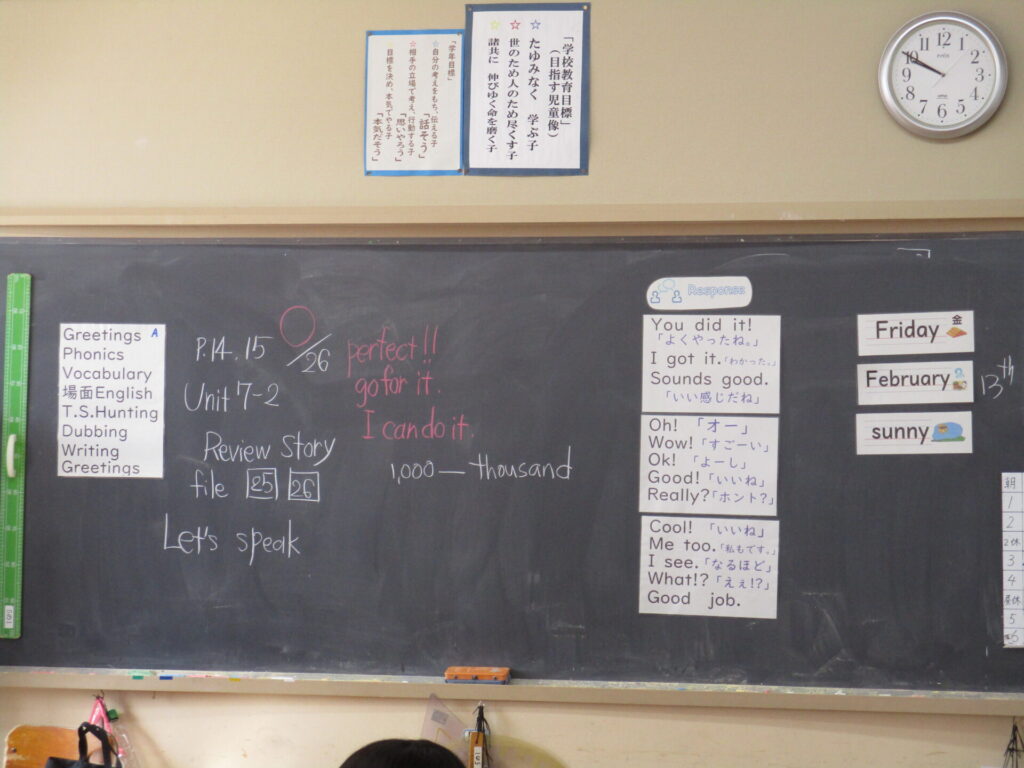 「学校教育目標」
(目指す児童像)
☆ たゆみなく 学ぶ子
☆ 世のため人のため尽くす子
☆ 諸共に 伸びゆく命を磨く子
「学年目標」
☆自分の考えをもち、伝える子
「話そう」
☆相手の立場で考え、行動する子
「思いやろう」
目標を決め、本気でやる子
「本気だそう」
12
1
2
3
4
5
6
7
8
9
10
11
Greetings A
Phonics
Vocabulary
場面English
T.S.Hunting
Dubbing
Writing
Greetings
P.14.15
/26
Unit 7-2
Review Story
file 25 26
Let's speak
perfect!!
go for it.
I can do it.
1,000 — thousand
Response
You did it!
「よくやったね。」
I got it.「わかった。」
Sounds good.
「いい感じだね」
Oh! 「オー」
Wow! 「すごーい」
Ok! 「よーし」
Good! 「いいね」
Really?「ホント?」
Cool! 「いいね」
Me too.「私もです。」
I see.「なるほど」
What!?「えぇ!?」
Good job.
Friday 金
February 2
13th
sunny
朝
1
2
2休
3
4
昼休
5
6